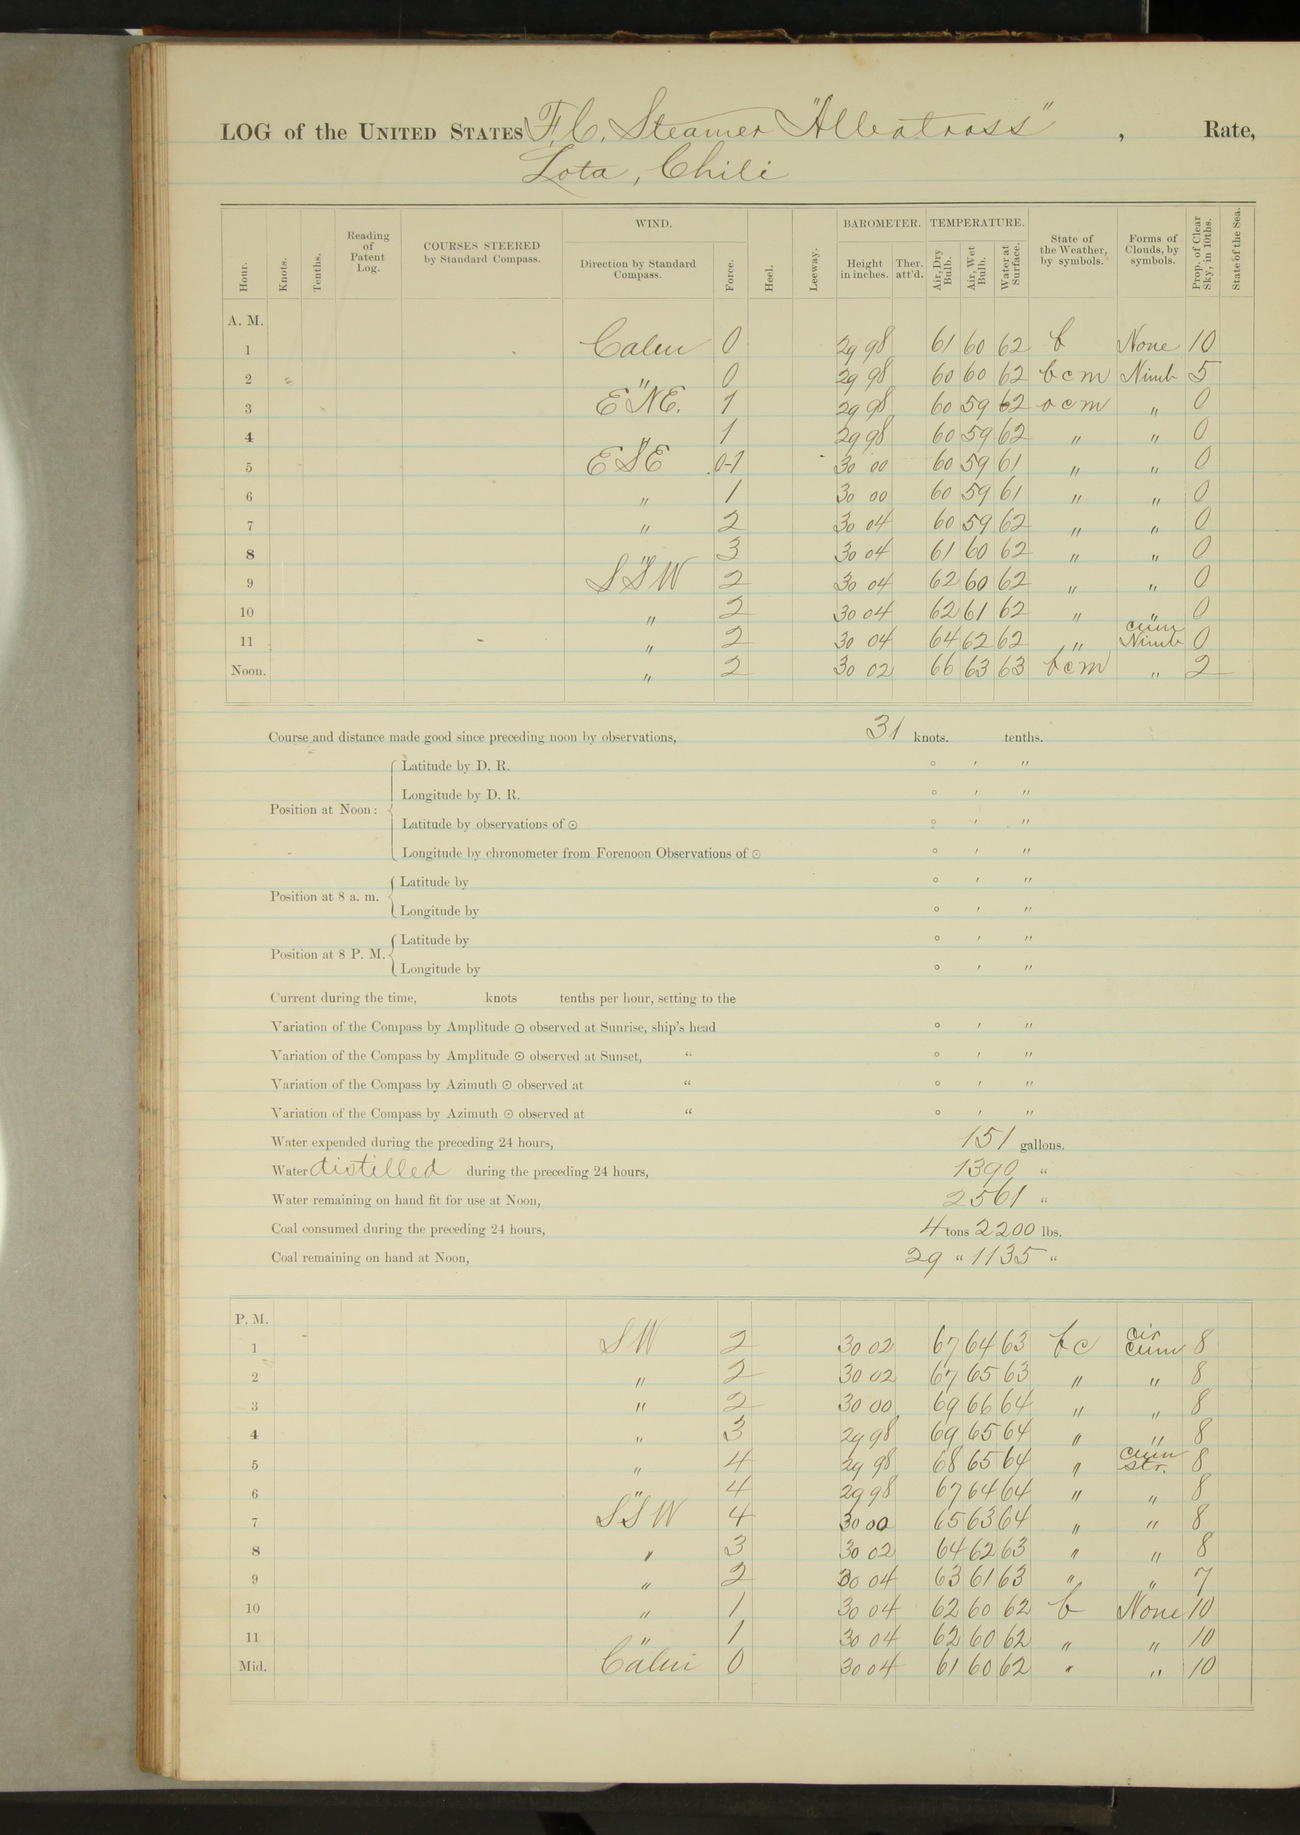 LOG of the UNITED STATES F.C. Steamer "Albatross", Rate,
Lota, Chili
Hour. Knots. Tenths. Reading of Patent Log. COURSES STEERED by Standard Compass. WIND. Direction by Standard Compass. Force. Heel. Leeway. BAROMETER. Height in inches. Ther. att'd. TEMPERATURE. Air, Dry Bulb. Air, Wet Bulb. Water at Surface. State of the Weather, by symbols. Forms of Clouds, by symbols. Prop. of Clear Sky, in 10ths. State of the Sea.
A. M.
1 Calm 0 29 98 61 60 62 b None 10
2 " 0 29 98 60 60 62 bcm Nimb 5
3 ENE. 1 29 98 60 59 62 ocm " 0
4 " 1 29 98 60 59 62 " " 0
5 ESE 0-1 30 00 60 59 61 " " 0
6 " 1 30 00 60 59 61 " " 0
7 " 2 30 04 60 59 62 " " 0
8 " 3 30 04 61 60 62 " " 0
9 SSW 2 30 04 62 60 62 " " 0
10 " 2 30 04 62 61 62 " " 0
11 " 2 30 04 64 62 62 " cum Nimb 0
Noon. " 2 30 02 66 63 63 bcm " 2
Course and distance made good since preceding noon by observations, 31 knots. tenths.
Position at Noon:
Latitude by D. R. ° ′ ″
Longitude by D. R. ° ′ ″
Latitude by observations of ⊙ ° ′ ″
Longitude by chronometer from Forenoon Observations of ⊙ ° ′ ″
Position at 8 a. m.
Latitude by ° ′ ″
Longitude by ° ′ ″
Position at 8 P. M.
Latitude by ° ′ ″
Longitude by ° ′ ″
Current during the time, knots tenths per hour, setting to the
Variation of the Compass by Amplitude ⊙ observed at Sunrise, ship's head ° ′ ″
Variation of the Compass by Amplitude ⊙ observed at Sunset, “ ° ′ ″
Variation of the Compass by Azimuth ⊙ observed at “ ° ′ ″
Variation of the Compass by Azimuth ⊙ observed at “ ° ′ ″
Water expended during the preceding 24 hours, 151 gallons.
Water distilled during the preceding 24 hours, 1390 “
Water remaining on hand fit for use at Noon, 2561 “
Coal consumed during the preceding 24 hours, 4 tons 2200 lbs.
Coal remaining on hand at Noon, 29 “ 1135 “
P. M.
1 SW 2 30 02 67 64 63 bc cir cum 8
2 " 2 30 02 67 65 63 " " 8
3 " 2 30 00 69 66 64 " " 8
4 " 3 29 98 69 65 64 " " 8
5 " 4 29 98 68 65 64 " cum str. 8
6 " 4 29 98 67 64 64 " " 8
7 SSW 4 30 00 65 63 64 " " 8
8 " 3 30 02 64 62 63 " " 8
9 " 2 30 04 63 61 63 " " 7
10 " 1 30 04 62 60 62 b None 10
11 " 1 30 04 62 60 62 " " 10
Mid. Calm 0 30 04 61 60 62 " " 10